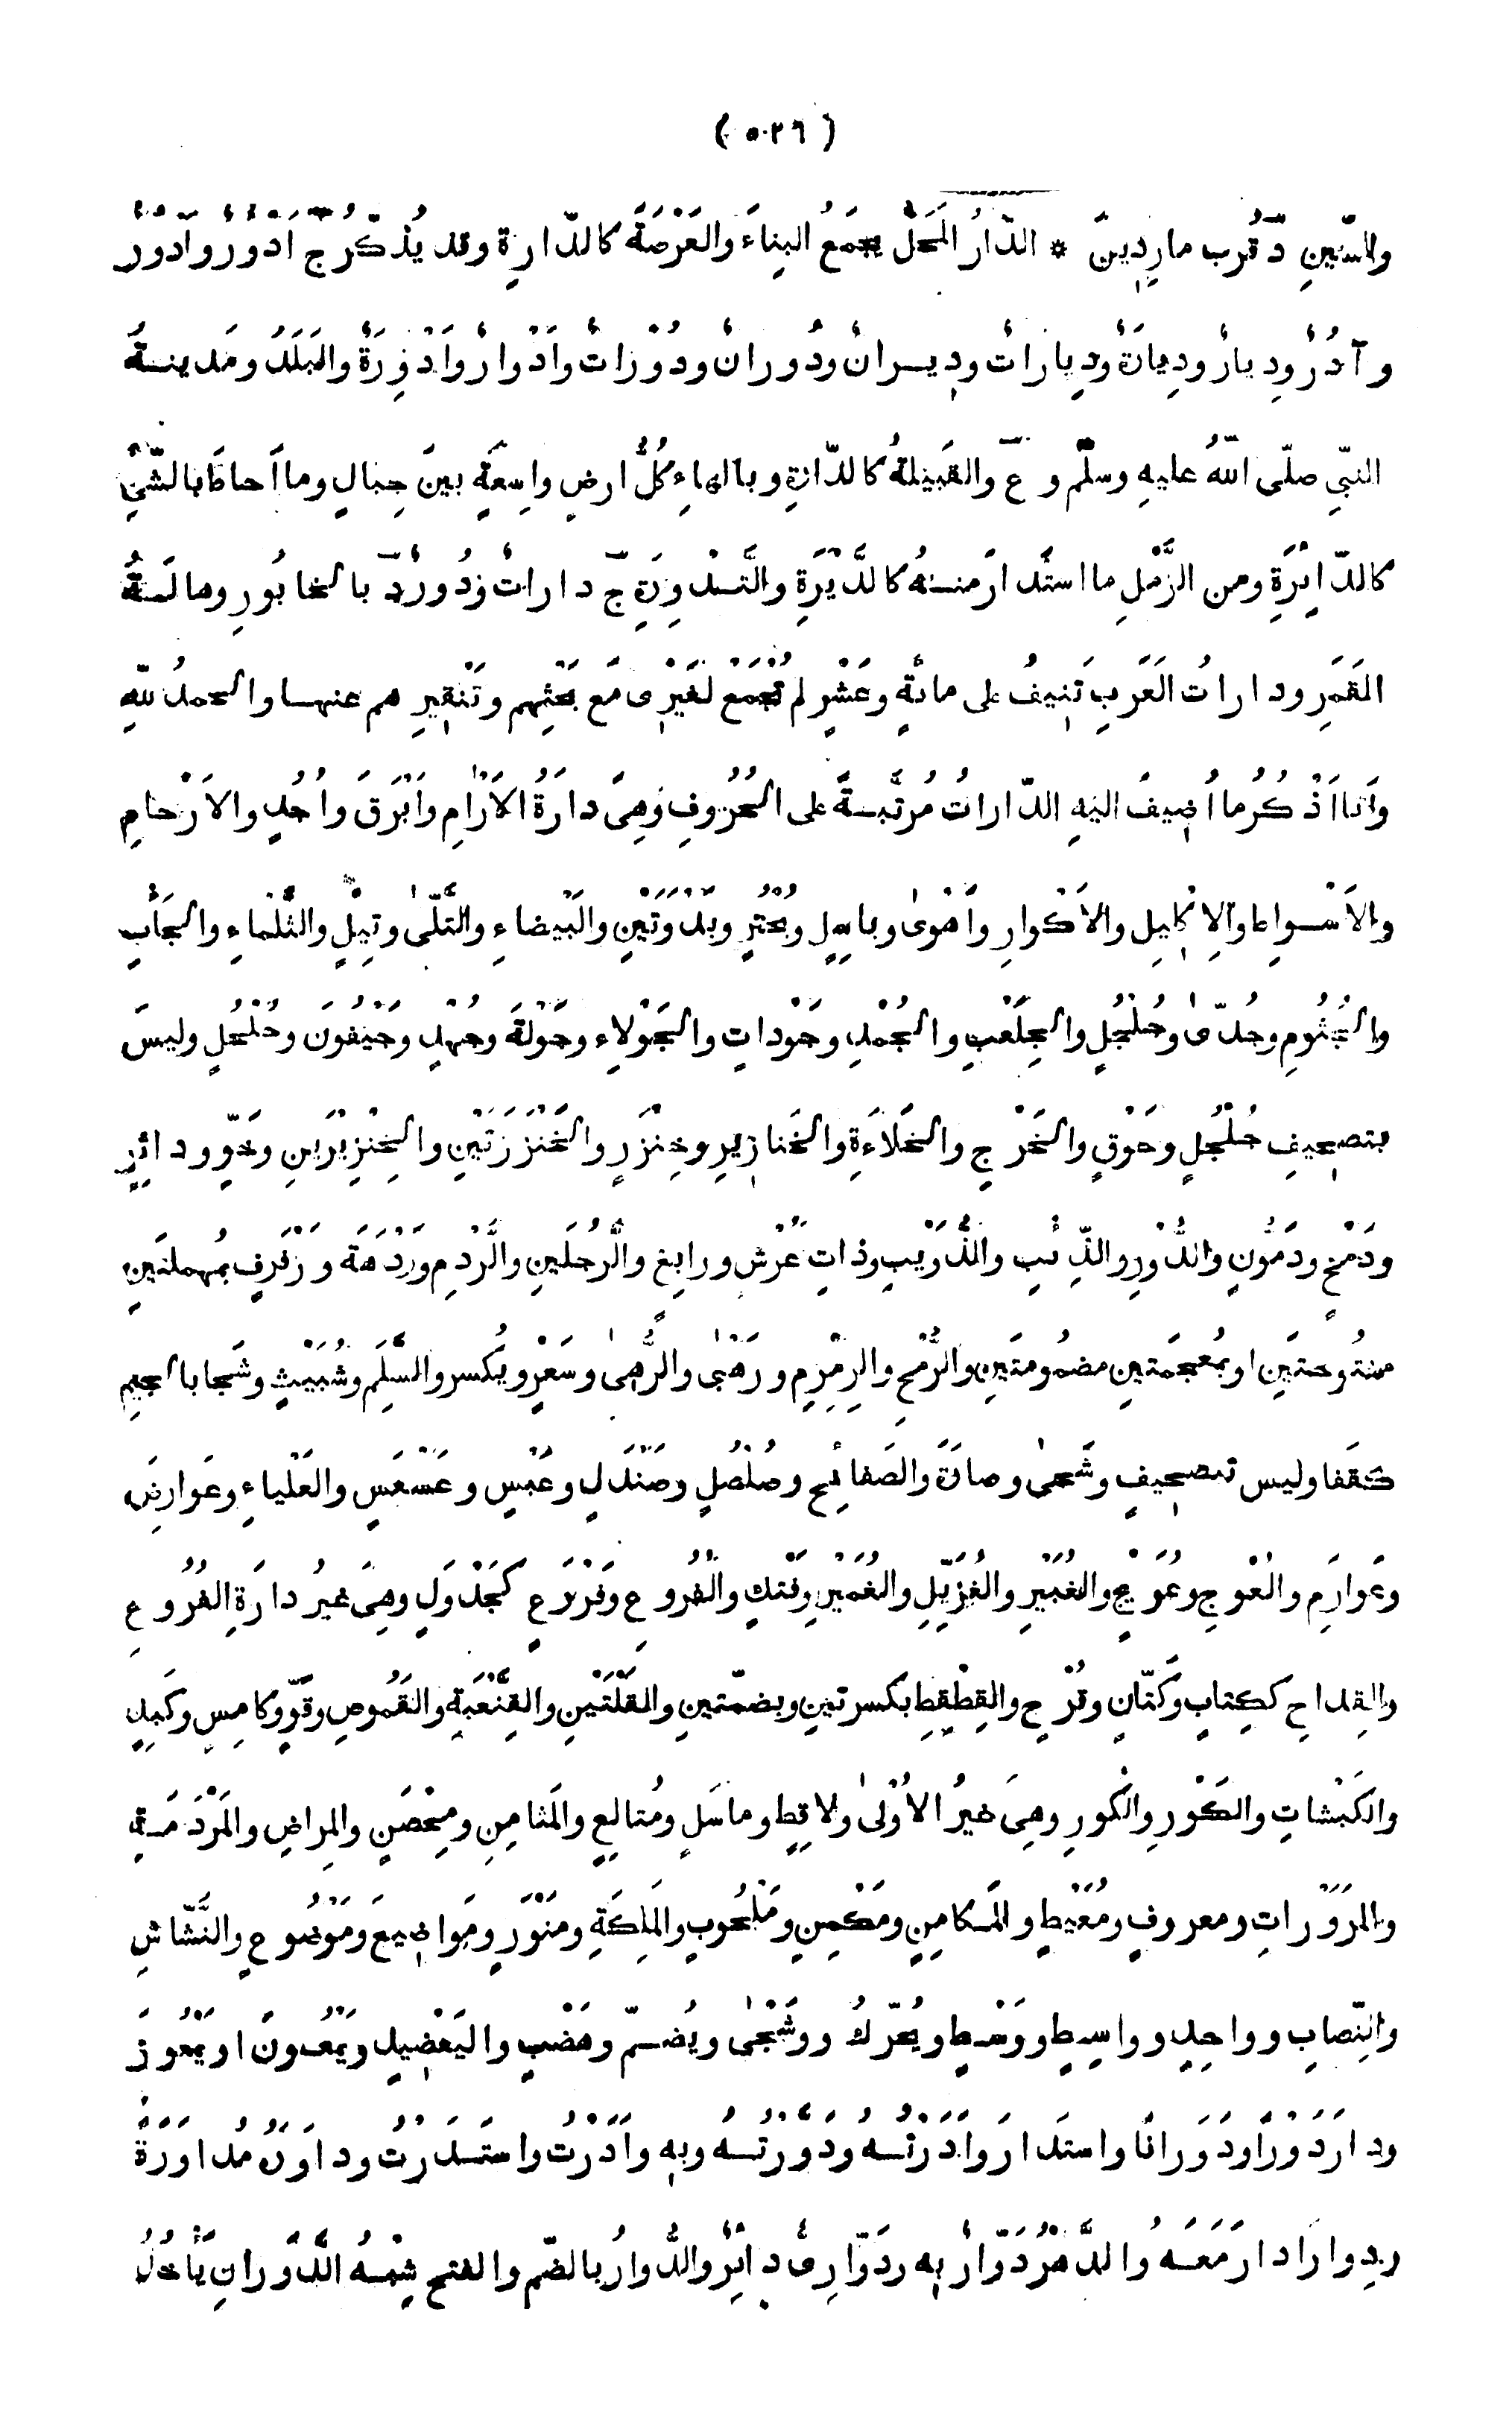 ( ٥٠٢٦ )
والسّينِ دّ قُرب مارِدِينَ * الدّارُ المَحَلُّ يجمَعُ البِناءَ والعَرْصَةَ كالدّارةِ وقد يُذكّرُ جّ ادوُرٌ وآدوُرٌ
وآدُرٌ ودِيارٌ ودِيارَةٌ ودِياراتٌ ودِيرانٌ ودُورانٌ ودُوْراتٌ وأدْوارٌ وأدْوِرَةٌ والبَلَدُ ومَدينةُ
النبّىِ صلّى اللّهُ عليهِ وسلّم و ع والقَبيلةُ كالدّارةِ وبالهاءِ كُلُّ ارضٍ واسِعَةٍ بينَ جِبالٍ وما أحاطَ بالشّئِ
كالدّائرَةِ ومن الرَّمْلِ ما استَدارَ منهُ كالدَّيْرَةِ والتَدْوِرَةِ جّ داراتٌ ودُورٌ ودّ بالخابُورِ وهالَةُ
القَمَرِ وداراتُ العَرَبِ تَنيفُ على مائةٍ وعَشْرٍ لم تُجْمَعْ لغَيْرِى مَعَ بَحْثِهم وتَنْقيرِهم عنها والحمدُ للّهِ
وأنا أذْكُرُ ما أُضيفَ اليهِ الدّاراتُ مُرتَّبةً على الحُرُوفِ وهىَ دارَةُ الآرامِ وأبْرَقَ وأُحُدٍ والأرْحامِ
والأسْواطِ والإكليلِ والأكْوارِ وأهْوى وباسِلٍ وبُحْتُرٍ وبَدْوَتَيْنِ والبَيْضاءِ والتُّلَّى وتِيْلٍ والثَّلْماءِ والجَأْبِ
والجُثُومِ وجُدّى وجُلْجُلٍ والجِلْعَبِ والجُمْدِ وجَوْداتٍ والجَوْلاءِ وجَوْلةَ وجُهْدٍ وجَيْفُونَ وحُلْحُلٍ وليسَ
بتصحيفِ جُلْجُلٍ وحَوْقٍ والخَرْجِ والخَلاءَةِ والخَنازيرِ وخِنْزَرٍ والخَنْزَرَتَيْنِ والخِنْزِيْرَينِ وخَوٍّ وداثِرٍ
ودَمْخٍ ودَمّونٍ والدُّوْرِ والذّئبِ والذُّوَيْبِ وذاتِ عُرْشٍ ورابِغٍ والرُّجُلَينِ والرَّدْمِ ورَدْهَةَ ورَفْرَفٍ بمُهملتَينِ
مفتُوحتَينِ او بمُعجمَتينِ مضمُومتَينِ والرُّمْحِ والرِمْرِمِ ورَهْبى والرُّهى وسَعْرٍ ويُكسر والسَّلَمِ وشُبَيْثٍ وشَجا بالجيمِ
كقَفا وليس تصحيفِ وشَحى وصارَةَ والصَفائحِ وصُلْصُلٍ وصَنْدَلٍ وعَبْسٍ وعَسْعَسٍ والعَلْياءِ وعَوارِضَ
وعَوارِمَ والعُوْجِ وعُوَيْجٍ والغُبَيْرِ والغُزَيِّلِ والغُمَيْرِ وفَتْكٍ والفُرُوعِ وفَرْوَعٍ كجَدْوَلٍ وهىَ غيرُ دارَةِ الفُرُوعِ
والقِداحِ ككِتابٍ وكَتّانٍ وقُرْحٍ والقِطْقِطِ بكسرتينِ وبضمّتينِ والقَلْتَيْنِ والقِنَّعْبَةِ والقَمُوصِ وقَوٍّ وكامِسٍ وكَبِدٍ
والكَبْشاتِ والكَوْرِ والكُورِ وهىَ غيرُ الأوْلى ولاقِطٍ وماسَلٍ ومُتالِعٍ والمَثامِنِ ومِحْصَنٍ والمِراضِ والمَرْدَمَةِ
والمَرَوْراتِ ومعروفٍ ومُعَيْطٍ والمَكامِنِ ومَكْمِنٍ ومَلْحُوبٍ والمَلِكَةِ ومَنْوَرٍ ومَواضيعَ ومَوْضُوعٍ والنَّشّاشِ
والنِّصابِ وواحِدٍ وواسِطٍ ووَسْطٍ ويُحرّكُ ووَشْجى ويُضمّ وهَضْبٍ واليَعْضيدِ ويَمْعُونَ او يَمْعُوزَ
ودارَ دَوْرًا ودَوَرانًا واستَدارَ وأدَرْتُهُ ودوّرْتُهُ وبِهِ وأدَرْتُ واستَدَرْتُ وداوَرَهُ مُداوَرَةً
ودِوارًا دارَ مَعَهُ والدَّهْرُ دَوّارٌ بِه ودَوّارِىٌّ دائرٌ والدُّوارُ بالضّم والفتحِ شِبْهُ الدَّوَرانِ يَأْخُذُ